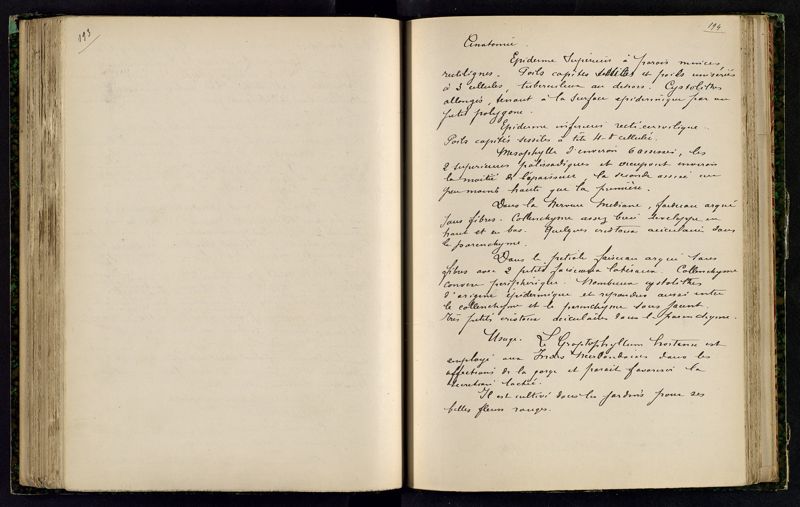 193
194
Anatomie.
Epiderme supérieur à parois minces,
rectilignes. Poils capités sessiles et poils unisériés
à 3 cellules, tuberculeux au dessus. Cystolithes
allongés, tenant à la surface épidermique par un
petit polygone.
Epiderme inférieur recti-curviligne.
Poils capités sessiles à tête 4-8 cellulée.
Mésophylle d'environ 6 assises, les
2 supérieures palissadiques et occupant environ
la moitié de l'épaisseur, la seconde assise un
peu moins haute que la première.
Dans la Nervure Médiane, faisceau arqué
sans fibres. Collenchyme assez bien développé en
haut et en bas. Quelques cristaux aciculaires dans
le parenchyme.
Dans le pétiole faisceau arqué sans
fibres avec 2 petits faisceaux latéraux. Collenchyme
concave périphérique. Nombreux cystolithes
d'origine épidermique et répandus aussi entre
le collenchyme et le parenchyme sous jacent.
Très petits cristaux aciculaires dans le parenchyme.
Usage. Le Graptophyllum hortense est
employé aux Indes Néerlandaises dans les
affections de la gorge et paraît favoriser la
sécrétion lactée.
Il est cultivé dans les jardins pour ses
belles fleurs rouges.